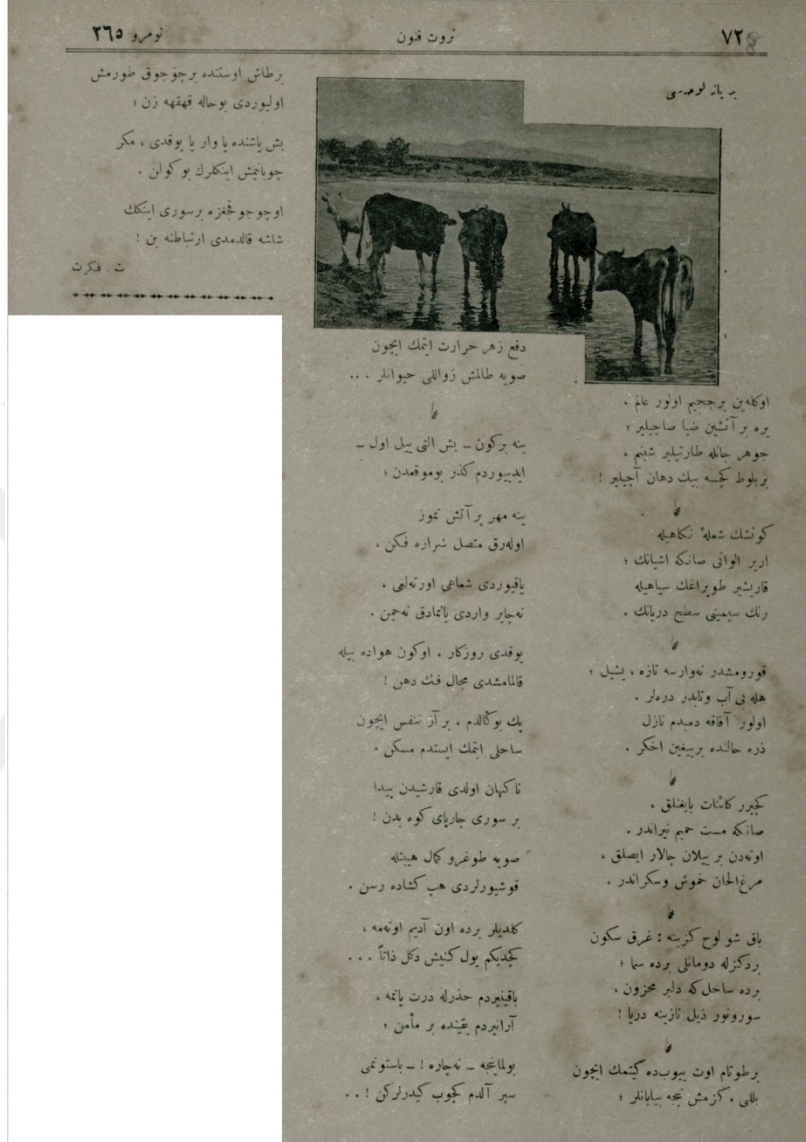 ٧٢٨
ثروت فنون
نومرو ٢٦٥
بر ياز لوحه‌سى
اوكله‌ين برجحيم اولور عالم ،
يره بر آتشين ضيا صاچيلير ؛
جوهر جانله طارتيلير شبنم ،
بربلوط كچسه بيك دهان آچيلير !
كونشك شعلهٔ نكاهيله
ارير الوانى صانكه اشيانك ؛
قاريشير طوپراغك سياهيله
رنك سيمينى سطح دريانك .
قورومشدر نه‌وارسه تازه ، يشيل ؛
هله بى آب وتابدر دره‌لر .
اولور آفاقه دمبدم نازل
ذره حالنده بريیغين اخكر .
كچيرر كائنات بايغنلق ،
صانكه مست حميم نيراندر .
اوته‌دن بر ييلان چالار ايصلق ،
مرغ‌الحان خموش وسكراندر .
باق شو لوح كزينه : غرق سكون
بردكزله دومانلى برده سما ؛
برده ساحل‌كه دلبر محزون ،
سورونور ذيل نازينه دريا !
برطوتام اوت ييوب‌ده كيتمك ايچون
بللى ، كزمش نيجه بيابانلر ؛
دفع زهر حرارت ايتمك ايچون
صويه طالمش زواللى حيوانلر ...
ينه بركون ــ بش التى ييل اول ــ
ايدييوردم كذر بوموقعدن ؛
ينه مهر پر آتش تموز
اوله‌رق متصل شراره فكن ،
ياقيوردى شعاعى اورته‌لغى ،
نه‌چاير واردى يانمادق نه‌چمن .
يوقدى روزكار ، اوكون هواده بيله
قالمامشدى مجال فتح دهن !
پك بوكالدم ، بر آز تنفس ايچون
ساحلى ايتمك ايستدم مسكن .
ناكهان اولدى قارشيدن پيدا
بر سورى چارپاى كوه بدن !
صويه طوغرو كمال هيبتله
قوشيورلردى هپ كشاده رسن .
كلديلر برده اون آديم اوته‌مه ،
كچديكم يول كنيش دكل ذاتاً ...
باقينيردم حذرله درت يانمه ،
آرانيردم يقينده بر مأمن ؛
بولماينجه ــ نه‌چاره ! ــ باستونمى
سپر آلدم كچوب كيدرلركن ! ..
برطاش اوستنده برچوجوق طورمش
اوليوردى بوحاله قهقهه زن ؛
بش ياشنده يا وار يا يوقدى ، مكر
چوبانيمش اينكلرك بو كولن .
اوچوجوقجغزه برسورى اينكك
شاشه قالدمدى ارتباطنه بن !
ت . فكرت